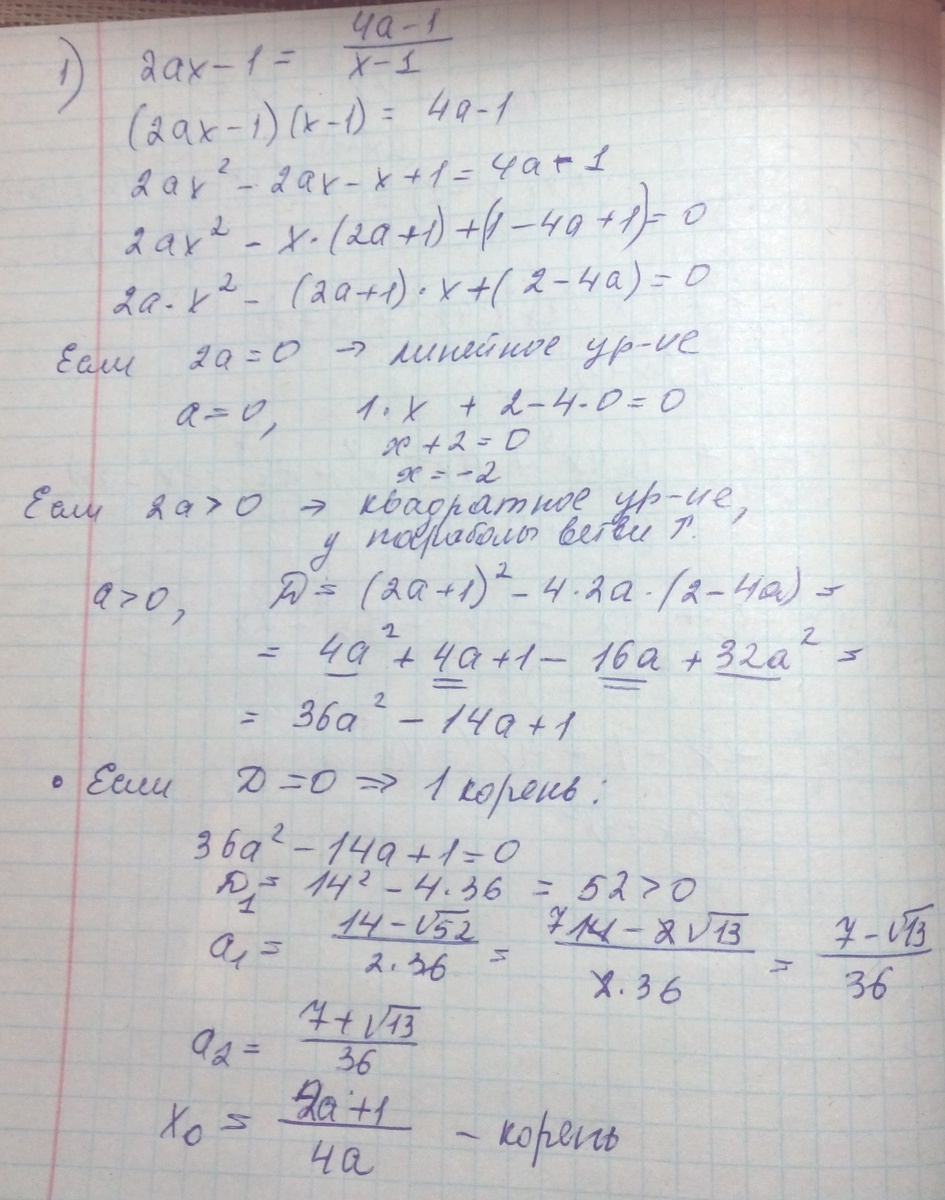 1) 2ax - 1 = (4a - 1)/(x - 1)
(2ax - 1)(x - 1) = 4a - 1
2ax² - 2ax - x + 1 = 4a - 1
2ax² - x·(2a + 1) + (1 - 4a + 1) = 0
2a·x² - (2a + 1)·x + (2 - 4a) = 0
Если 2a = 0 → линейное ур-ие
a = 0, 1·x + 2 - 4·0 = 0
x + 2 = 0
x = -2
Если 2a > 0 → квадратное ур-ие,
у параболы ветви ↑.
a > 0, D = (2a + 1)² - 4·2a·(2 - 4a) =
= 4a² + 4a + 1 - 16a + 32a² =
= 36a² - 14a + 1
• Если D = 0 => 1 корень:
36a² - 14a + 1 = 0
D₁ = 14² - 4·36 = 52 > 0
a₁ = (14 - √52)/(2·36) = (7 14 - 2√13)/(2·36) = (7 - √13)/36
a₂ = (7 + √13)/36
x₀ = (2a + 1)/(4a) - корень